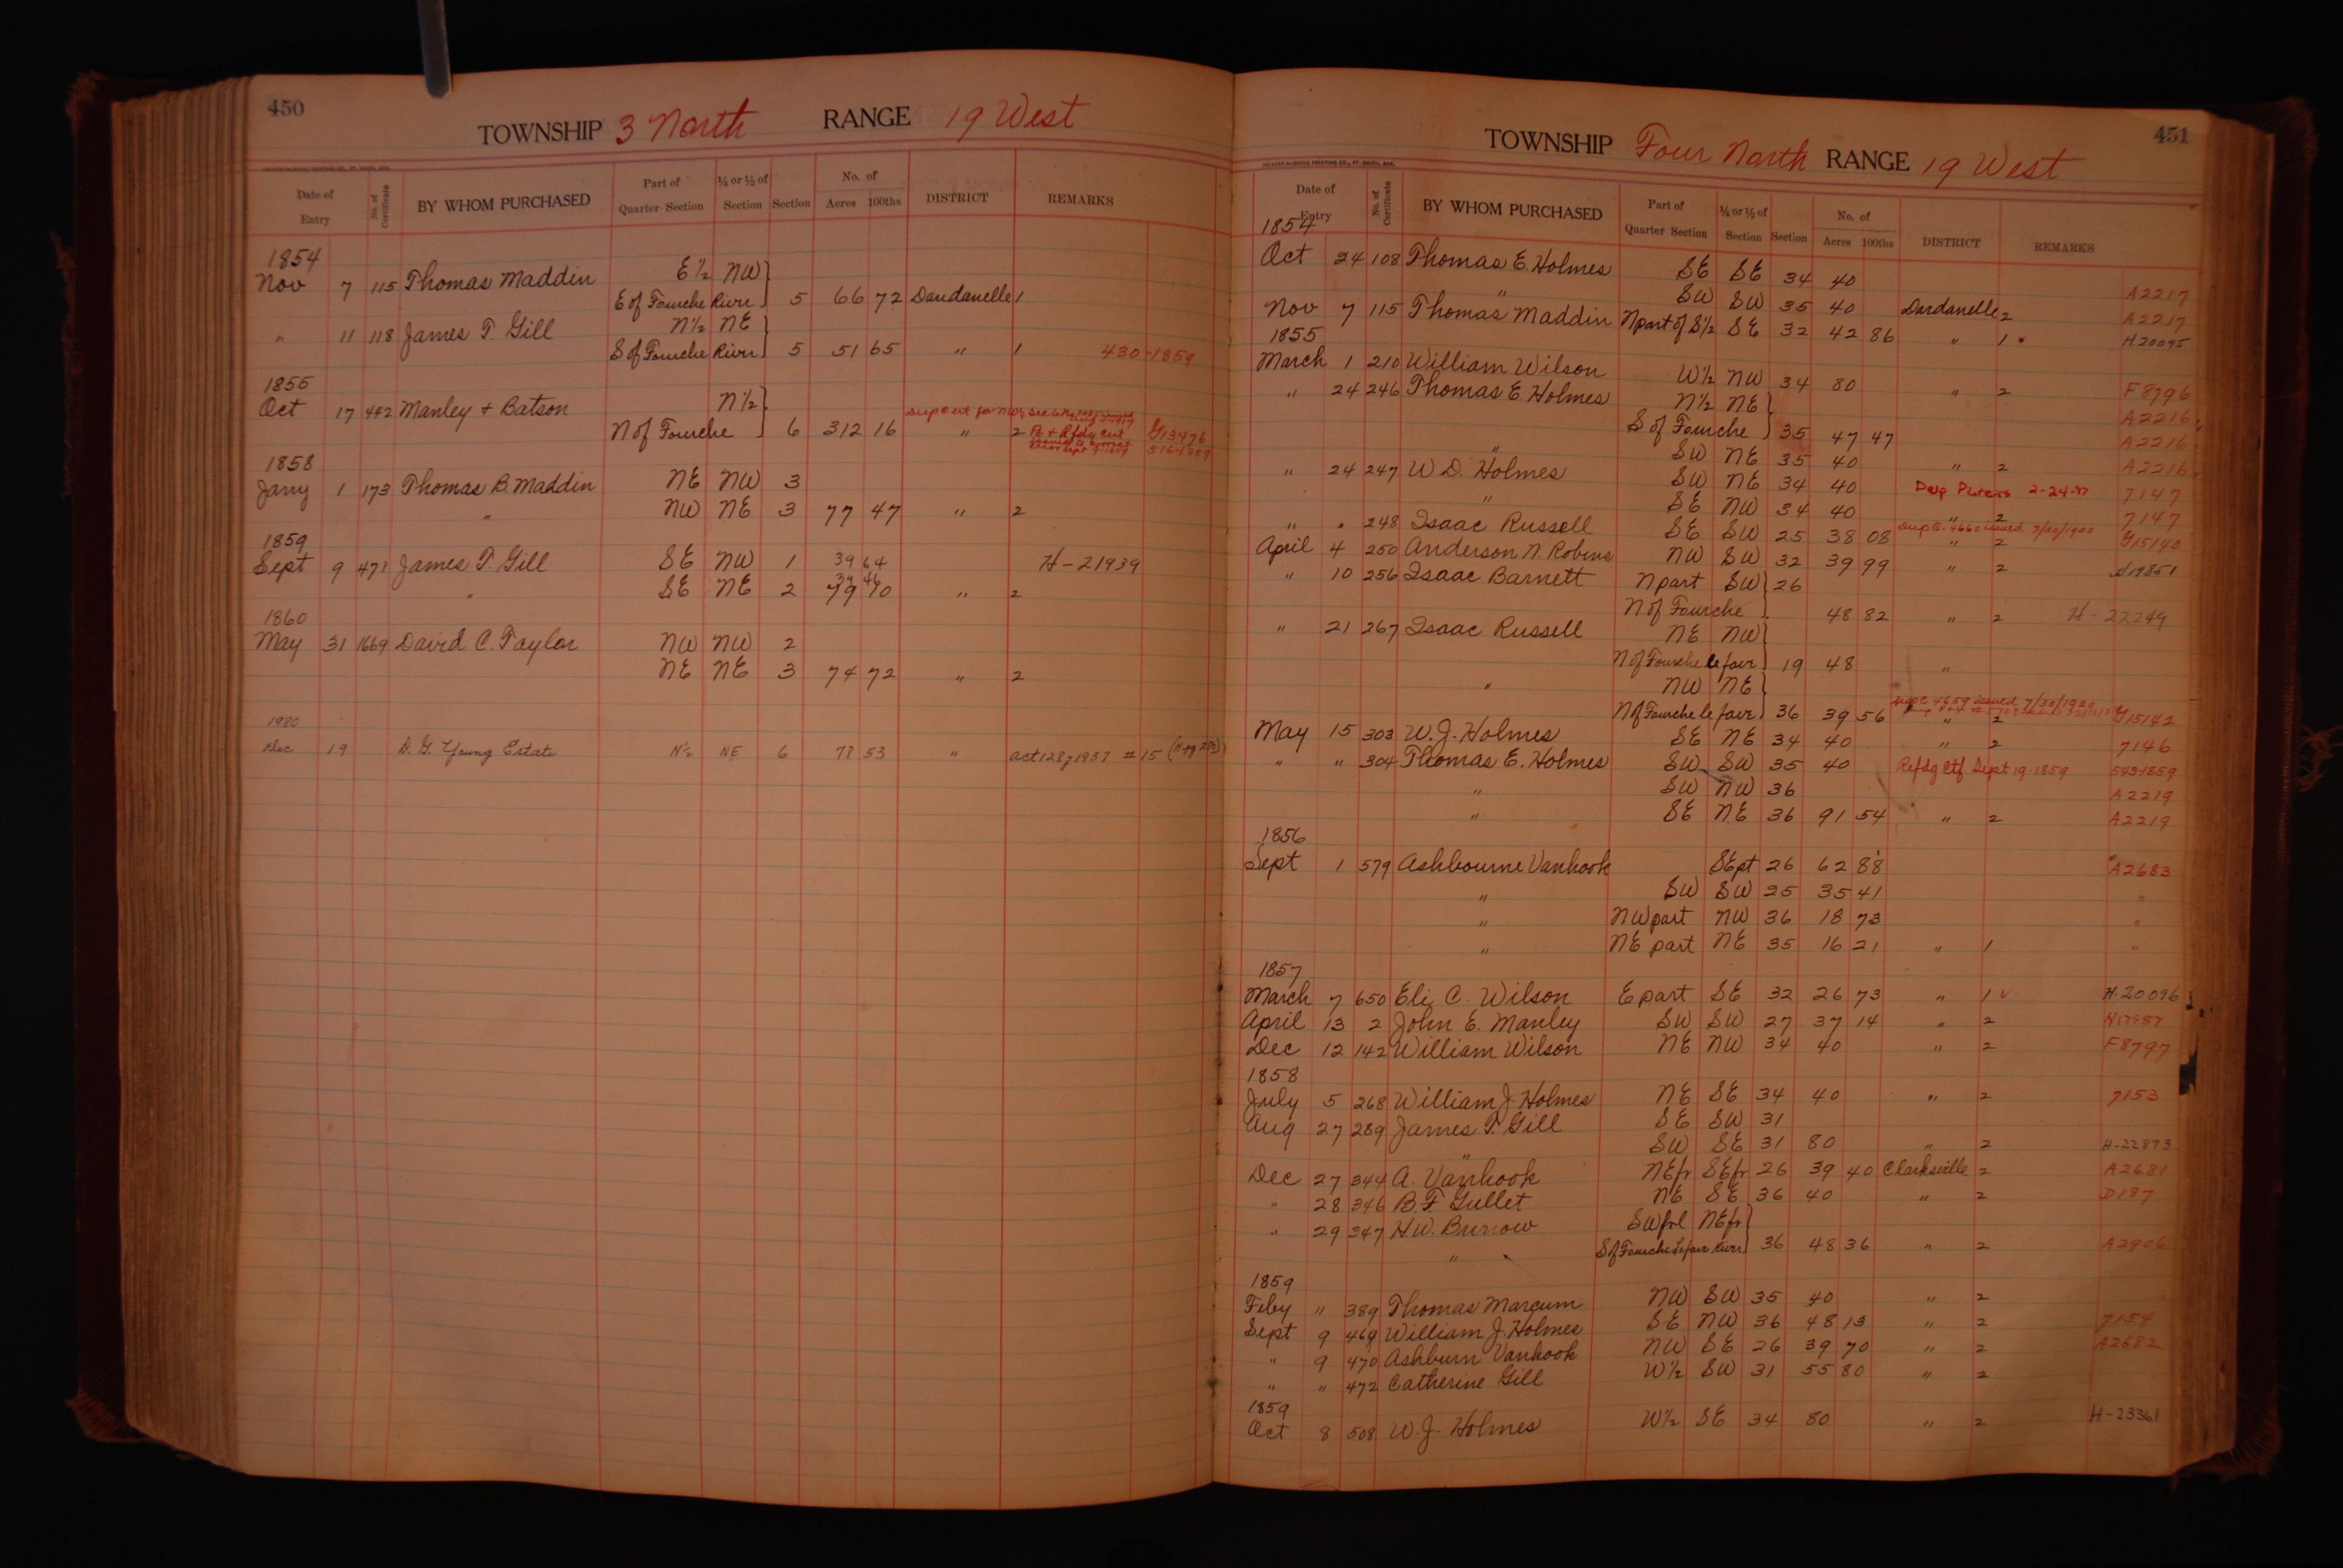 450
TOWNSHIP 3 North RANGE 19 West
CALVERT-McBRIDE PRINTING CO., FT. SMITH, ARK.
Date of Entry No. of Certificate BY WHOM PURCHASED Part of Quarter Section ¼ or ½ of Section Section No. of Acres 100ths DISTRICT REMARKS
1854
Nov 7 115 Thomas Maddin E½ NW
E of Fourche River 5 66 72 Dardanelle 1
" 11 118 James T. Gill N½ NE
S of Fourche River 5 51 65 " 1 430-1859
1855
Oct 17 442 Manley + Batson N½
N of Fourche 6 312 16 " 2 G13476
516-1859
1858
Jany 1 173 Thomas B. Maddin NE NW 3
" NW NE 3 77 47 " 2
1859
Sept 9 471 James T. Gill SE NW 1 39 64 H-21939
39 46
" SE NE 2 79 10 " 2
1860
May 31 1669 David C. Taylor NW NW 2
NE NE 3 74 72 " 2
1980
Dec 19 D. G. Young Estate N½ NE 6 78 53 " Act 128 of 1957 #15
451
TOWNSHIP Four North RANGE 19 West
CALVERT-McBRIDE PRINTING CO., FT. SMITH, ARK.
Date of Entry No. of Certificate BY WHOM PURCHASED Part of Quarter Section ¼ or ½ of Section Section No. of Acres 100ths DISTRICT REMARKS
1854
Oct 24 108 Thomas E. Holmes SE SE 34 40 A2217
" SW SW 35 40 Dardanelle 2 A2217
Nov 7 115 Thomas Maddin N part of S½ SE 32 42 86 " 1 H20095
1855
March 1 210 William Wilson W½ NW 34 80 " 2 F8796
" 24 246 Thomas E. Holmes N½ NE A2216
S of Fourche 35 47 47 A2216
" SW NE 35 40 " 2 A2216
" 24 247 W. D. Holmes SW NE 34 40 Dup Patents 2-24-97 7147
" SE NW 34 40 " 2 7147
" " 248 Isaac Russell SE SW 25 38 08 Dup C. 4660 issued 7/30/1920 " 2 G15143
April 4 250 Anderson N. Robins NW SW 32 39 99 " 2 H19851
" 10 256 Isaac Barnett N part SW 26
N of Fourche 48 82 " 2 H-22249
" 21 267 Isaac Russell NE NW
N of Fourche le fair 19 48 "
" NW NE
N of Fourche le fair 36 39 56 Dup C 4659 issued 7/30/1920 " 2 G15142
May 15 303 W. J. Holmes SE NE 34 40 " 2 7146
" " 304 Thomas E. Holmes SW SW 35 40 Refdg Ctf Sept 19-1859 543-1859
" SW NW 36 A2219
" SE NE 36 91 54 " 2 A2219
1856
Sept 1 579 Ashbourne Vanhook SE pt 26 62 88 A2683
" SW SW 25 35 41 "
" NW part NW 36 18 73 "
" NE part NE 35 16 21 " 1 "
1857
March 7 650 Eli C. Wilson E part SE 32 26 73 " 1 ✓ H-20096
April 13 2 John E. Manley SW SW 27 37 14 " 2 H17957
Dec 12 142 William Wilson NE NW 34 40 " 2 F8797
1858
July 5 268 William J. Holmes NE SE 34 40 " 2 7153
Aug 27 289 James T. Gill SE SW 31
" SW SE 31 80 " 2 H-22873
Dec 27 344 A. Vanhook NEfr SEfr 26 39 40 Clarksville 2 A2681
" 28 346 B. F. Gullet NE SE 36 40 " 2 D187
" 29 347 H. W. Burrow SWfrl NEfr
" S of Fourche Lefair River 36 48 36 " 2 A2906
1859
Feby " 389 Thomas Marcum NW SW 35 40 " 2
Sept 9 469 William J. Holmes SE NW 36 48 13 " 2 7154
" 9 470 Ashburn Vanhook NW SE 26 39 70 " 2 A2682
" " 472 Catherine Gill W½ SW 31 55 80 " 2
1859
Oct 8 508 W. J. Holmes W½ SE 34 80 " 2 H-23361